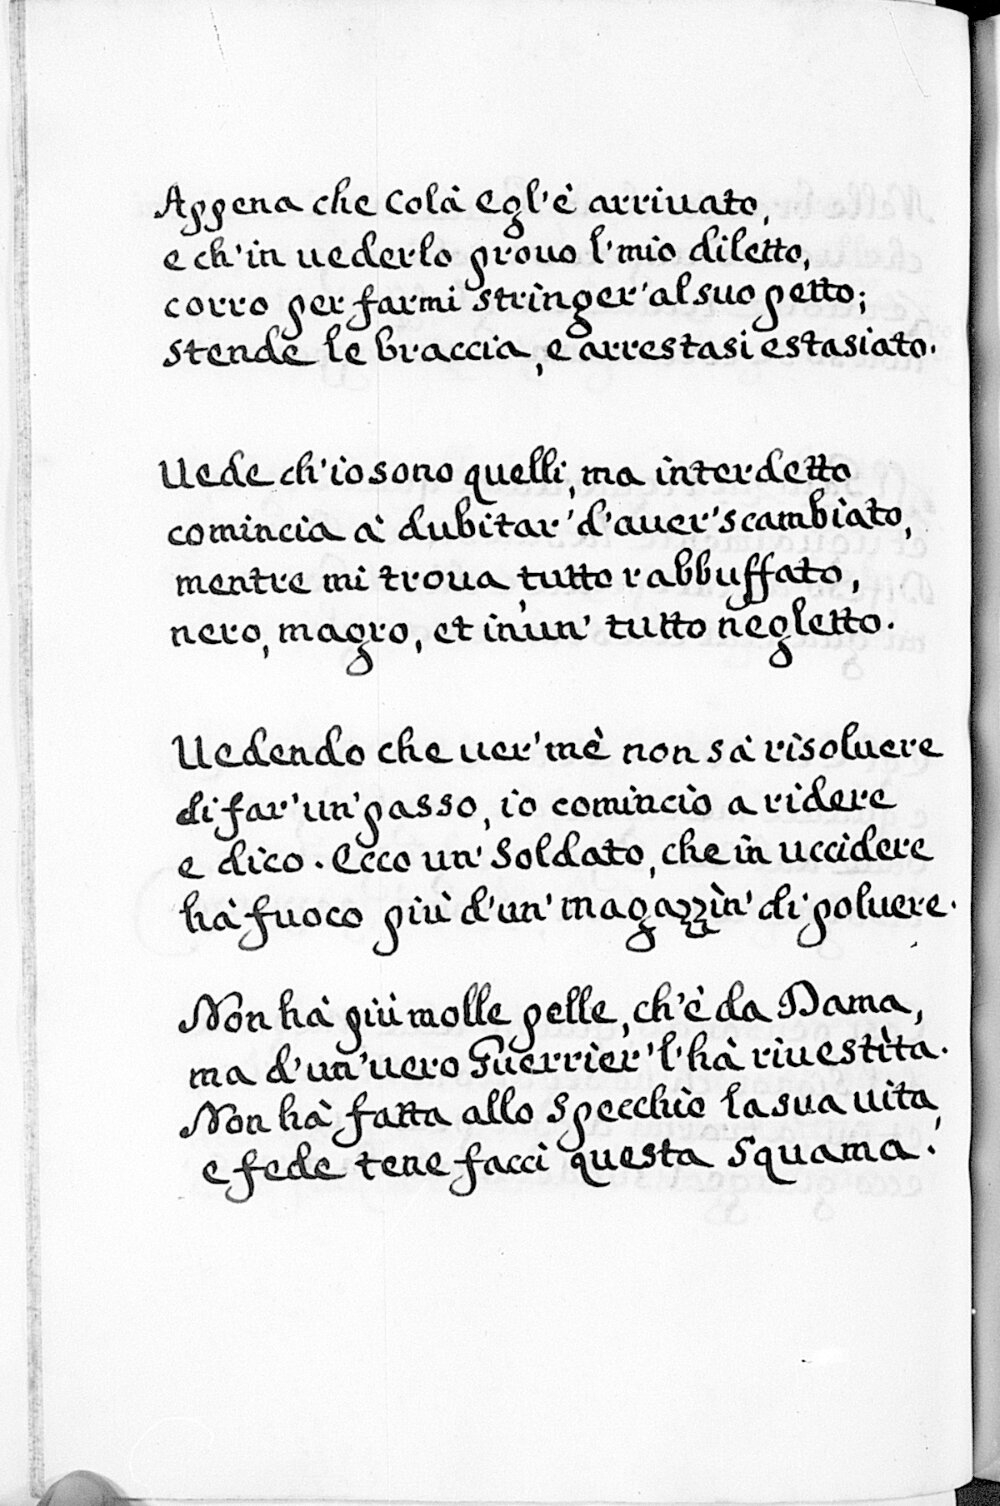 Appena che colà egl'è arriuato,
e ch'in uederlo prouo l'mio diletto,
corro per farmi stringer'al suo petto;
stende le braccia, e arrestasi estasiato.
Uede ch'io sono quelli, ma interdetto
comincia à dubitar' d'auer' scambiato,
mentre mi troua tutto rabbuffato,
nero, magro, et in'un' tutto negletto.
Uedendo che uer' mè non sà risoluere
di far' un' passo, io comincio a ridere
e dico. Ecco un' Soldato, che in uccidere
hà fuoco più d'un' magazzin' di poluere.
Non hà più molle pelle, ch'è da Dama,
ma d'un' uero Guerrier' l'hà riuestita.
Non hà fatta allo specchio la sua uita,
e fede tene facci questa squama.